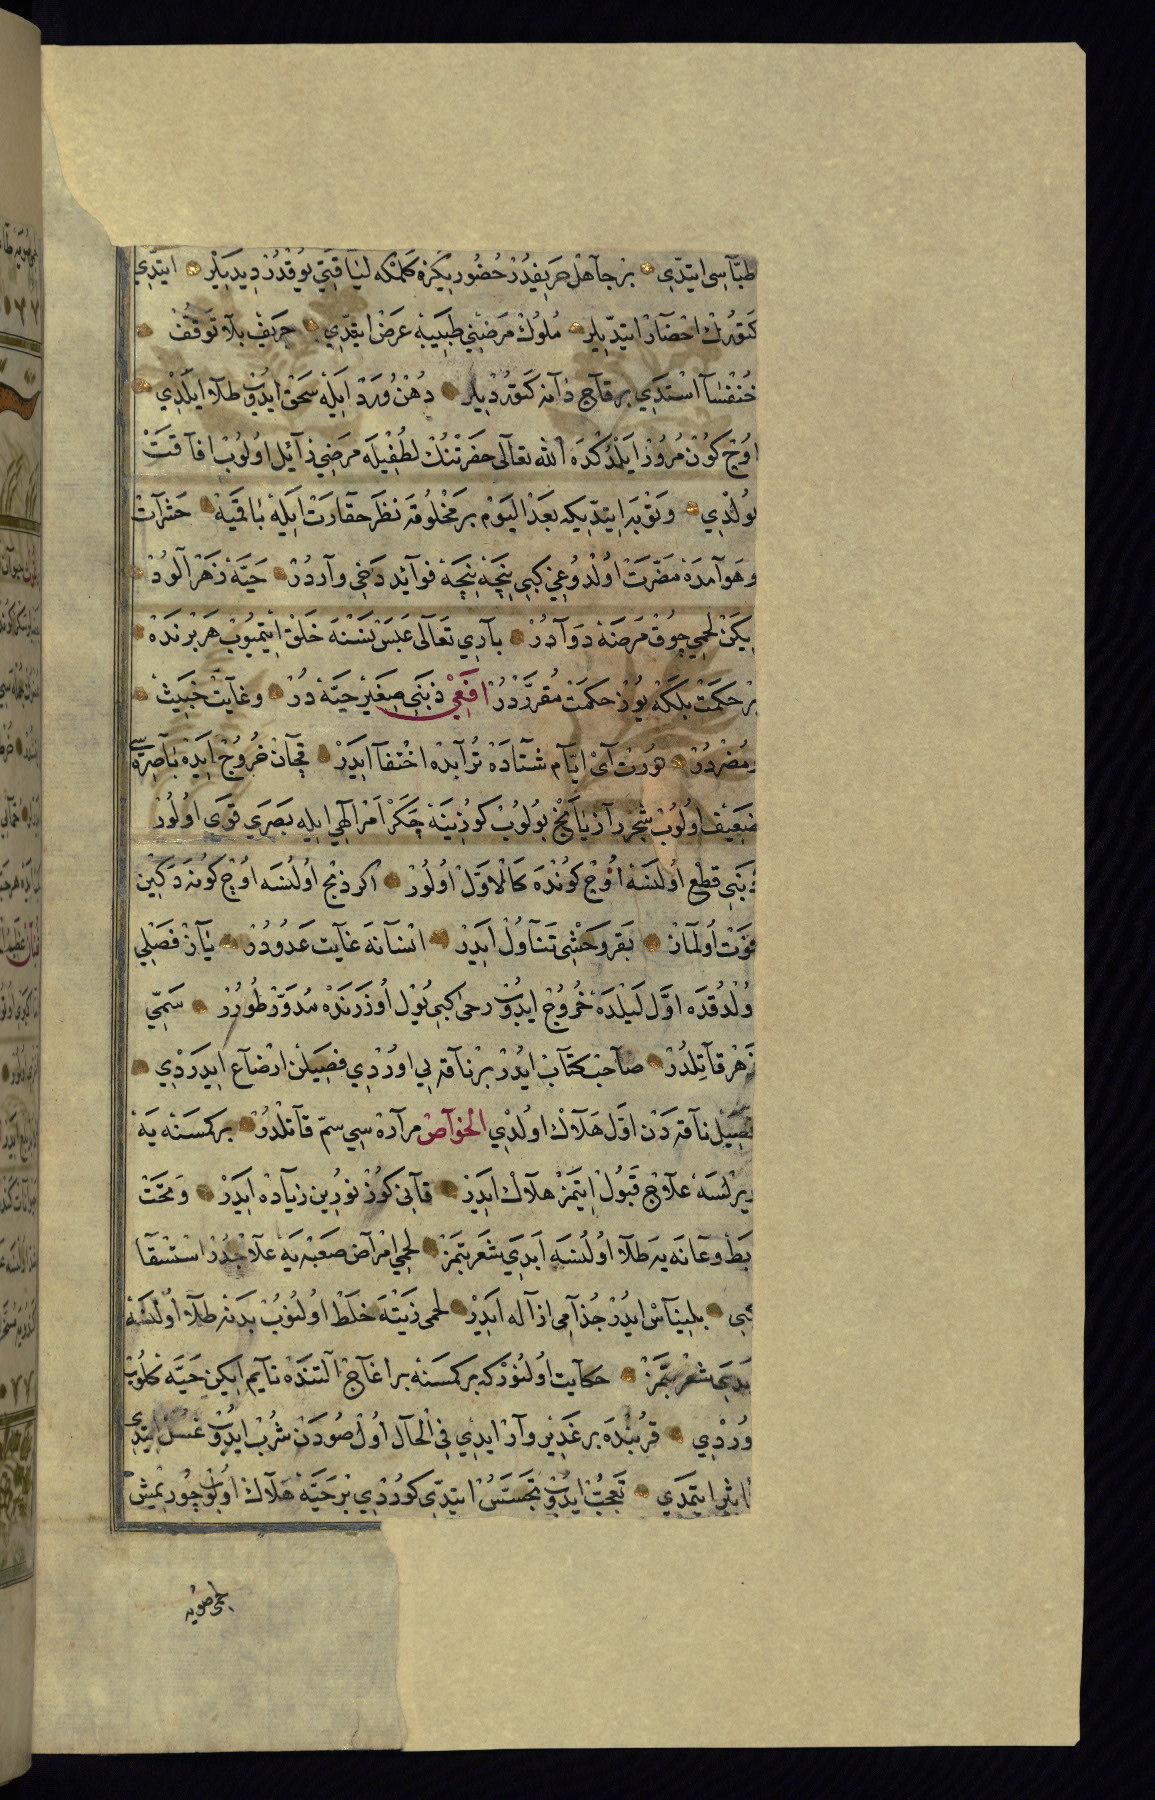 طبآسی ایتدی بر جآهل حریفدر حضوریکزه کلمکه لیاقتی یوقدر دیدیلر ایتدی
کتورک احضار ایتدیلر ملوک مرضینی طبیبه عرض ایتدی حریف بلا توقف
خنفسآ استدی بر قآج دآنه کتوردیلر دهن ورد ایله سحق ایدوب طلآ ایلدی
اوج کون مرور ایلدکده الله تعالی حضرتنک لطفیله مرضی زآئل اولوب افآقت
بولدی وتوبه ایتدیکه بعد الیوم بر مخلوقه نظر حقارت ایله باقمیه حشرآت
وهوآمده مضرت اولدوغی کبی نیجه نیجه فوآئد دخی وآردر حیه زهر آلود
ایکن لحمی چوق مرضه دوآدر باری تعآلی عبس نسنه خلق ایتمیوب هر برنده
بر حکمت بلکه یوز حکمت مقرردر افعی ذنبی صغیر حیه در وغآیت خبیث
ومضردر دورت آی ایآم شتآده ترآبده اختفآ ایدر قچآن خروج ایده باصره سی
ضعیف اولوب شجر رآزیآنج بولوب کوزینه چکر امر الهی ایله بصری قوی اولور
ذنبی قطع اولنسه اوج کونده کالاول اولور اکر ذبح اولنسه اوج کونه دکین
فوت اولماز بقر وحشی تنآول ایدر انسآنه غآیت عدودر یآز فصلی
ولدقده اول لیلده خروج ایدوب رحی کبی یول اوزرنده مدور طورر سمی
زهر قآتلدر صآحب کتآب ایدر بر نآقه یی اوردی فصیلن ارضآع ایدردی
فصیل نآقه دن اول هلآک اولدی الخوآص مرآره سی سم قآتلدر بر کمسنه یه
ویرلسه علآج قبول ایتمز هلآک ایدر قآنی کوز نورین زیآده ایدر وتحت
ابط وعآنه یه طلآ اولنسه ابدی شعر بتمز لحمی امرآض صعبه یه علآجدر استسقآ
کبی بلیناس ایدر جذآمی ازآله ایدر لحمی زیته خلط اولنوب بدنه طلآ اولنسه
ابدی شعر بتمز حکآیت اولنورکه بر کمسنه بر اغآج آلتنده نآیم ایکن حیه کلوب
وردی قربنده بر غدیر وآر ایدی فی الحآل اول صودن شرب ایدوب غسل ایتدی
تاثیر ایتمدی تعجب ایدوب تجسس ایتدی کوردی بر حیه هلآک اولوب چوریمش
لحمی صویه